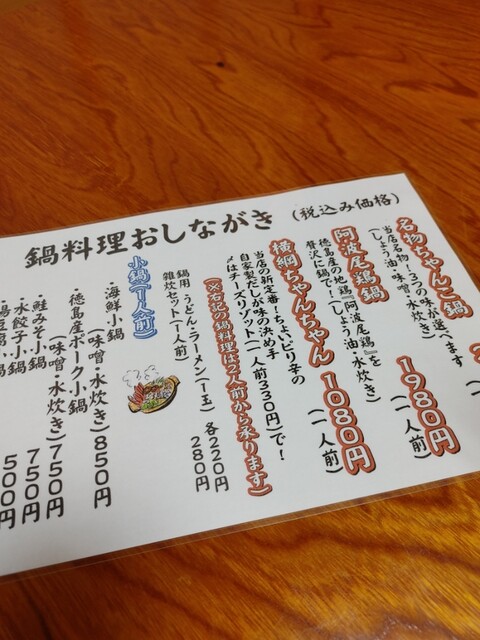 鍋料理おしながき (税込み価格)
名物ちゃんこ鍋
当店名物!3つの味が選べます
(しょう油・味噌・水炊き)
1980円
(一人前)
阿波尾鶏鍋
徳島産の地鶏『阿波尾鶏』を
贅沢に鍋で!(しょう油・水炊き)
横綱ちゃんちゃん 1080円
(一人前)
当店の新定番!ちょいピリ辛の
自家製だしが味の決め手
〆はチーズリゾット(一人前330円)で!
(※右記の鍋料理は2人前から承ります)
鍋用:うどん・ラーメン(1玉) 各220円
雑炊セット(1人前) 280円
小鍋(1人前)
・海鮮小鍋
(味噌・水炊き)850円
・徳島産ポーク小鍋
(味噌・水炊き)750円
・鮭みそ小鍋 750円
・水餃子小鍋 500円
・湯豆腐小鍋